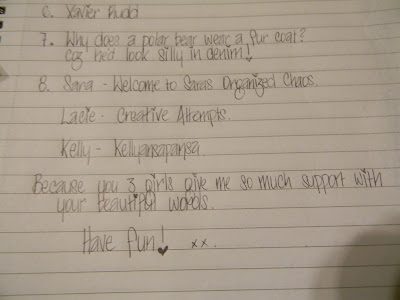 6. Xavier Rudd
7. Why does a polar bear wear a fur coat?
Coz he'd look silly in denim!
8. Sara - Welcome to Saras Organized Chaos.
Lacie - Creative Attempts.
Kelly - Kellyansapansa
Because you 3 girls give me so much support with
your beautiful words.
Have fun! xx.